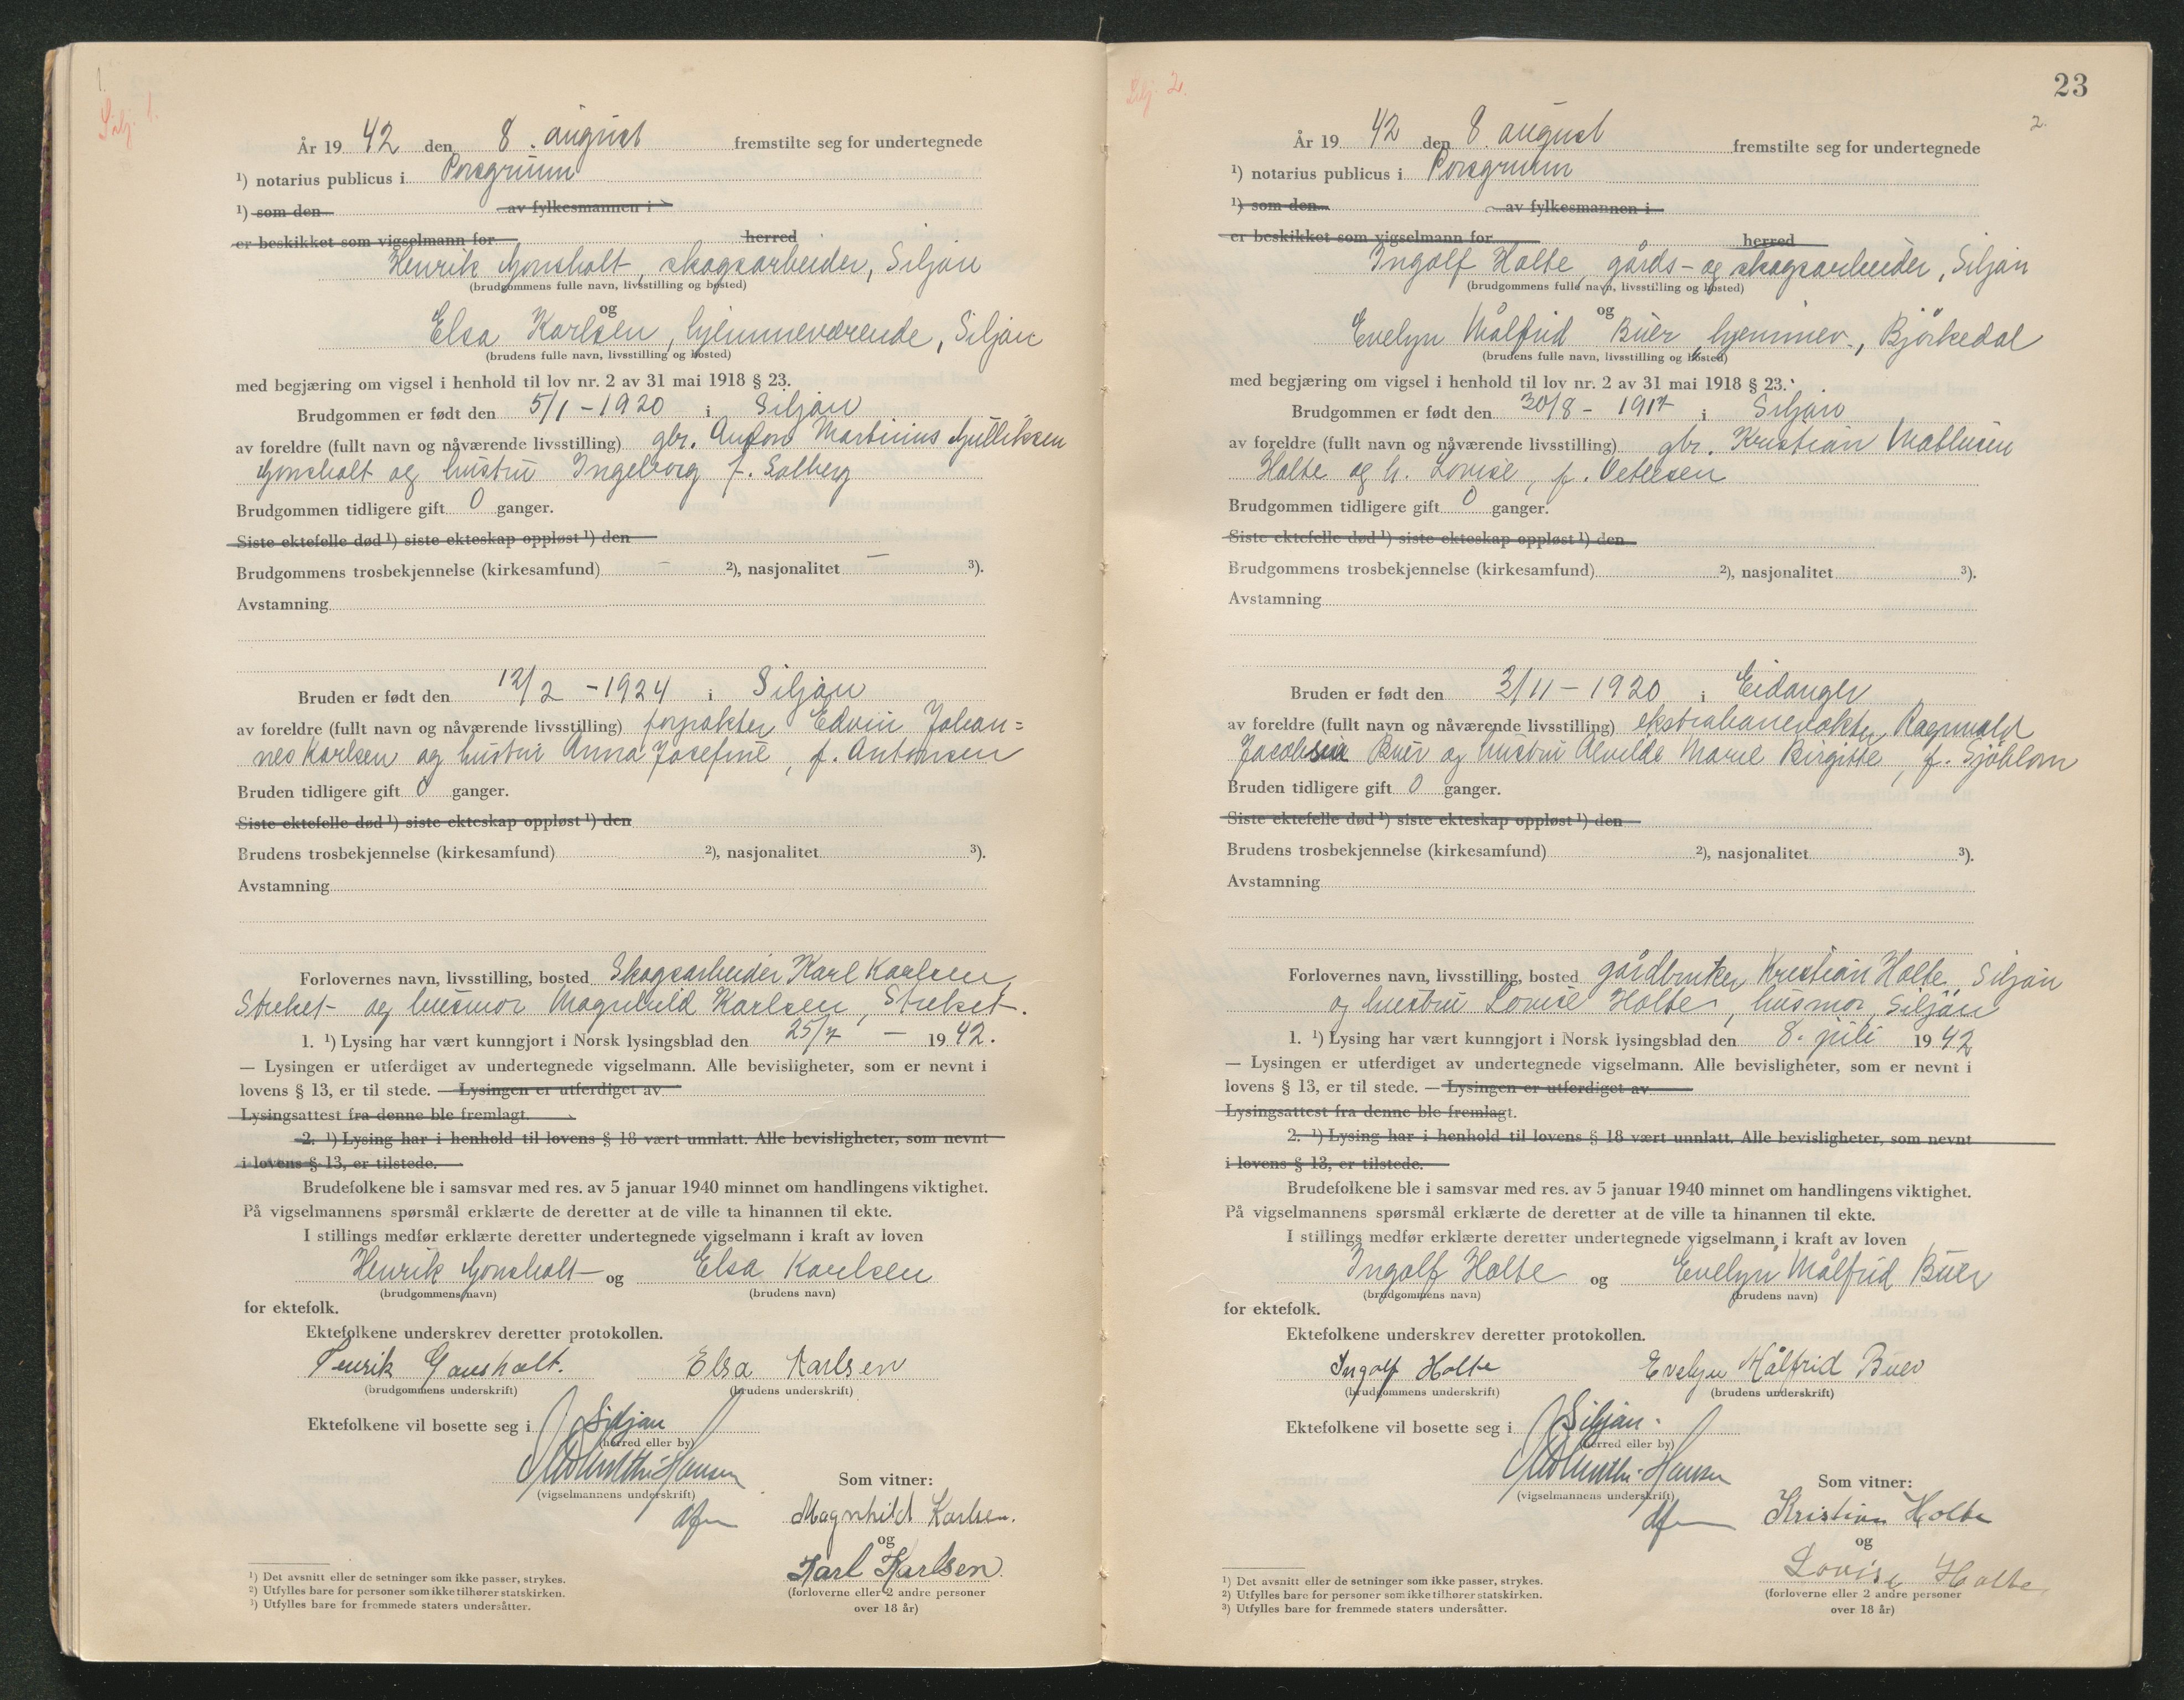 1.
Silj. 1.
År 19 42 den 8. august fremstilte seg for undertegnede
¹) notarius publicus i Porsgrunn
¹) som den av fylkesmannen i
er beskikket som vigselmann for herred
Henrik Gonsholt, skogsarbeider, Siljan
(brudgommens fulle navn, livsstilling og bosted)
og
Elsa Karlsen, hjemmeværende, Siljan
(brudens fulle navn, livsstilling og bosted)
med begjæring om vigsel i henhold til lov nr. 2 av 31 mai 1918 § 23.
Brudgommen er født den 5/1 - 1920 i Siljan
av foreldre (fullt navn og nåværende livsstilling) gbr. Anton Martinius Gulliksen
Gonsholt og hustru Ingeborg f. Solberg
Brudgommen tidligere gift 0 ganger.
Siste ektefelle død ¹) siste ekteskap oppløst ¹) den
Brudgommens trosbekjennelse (kirkesamfund) — ²), nasjonalitet — ³).
Avstamning
Bruden er født den 12/2 - 1924 i Siljan
av foreldre (fullt navn og nåværende livsstilling) forpakter Edvin Johan=
nes Karlsen og hustru Anna Josefine, f. Antonsen
Bruden tidligere gift 0 ganger.
Siste ektefelle død ¹) siste ekteskap oppløst ¹) den
Brudens trosbekjennelse (kirkesamfund) ²), nasjonalitet ³).
Avstamning
Forlovernes navn, livsstilling, bosted Skogsarbeider Karl Karlsen,
og husmor Magnhild Karlsen,
1. ¹) Lysing har vært kunngjort i Norsk lysingsblad den 25/7 — 19 42.
— Lysingen er utferdiget av undertegnede vigselmann. Alle bevisligheter, som er nevnt i
lovens § 13, er til stede. — Lysingen er utferdiget av
Lysingsattest fra denne ble fremlagt.
2. ¹) Lysing har i henhold til lovens § 18 vært unnlatt. Alle bevisligheter, som nevnt
i lovens § 13, er tilstede.
Brudefolkene ble i samsvar med res. av 5 januar 1940 minnet om handlingens viktighet.
På vigselmannens spørsmål erklærte de deretter at de ville ta hinannen til ekte.
I stillings medfør erklærte deretter undertegnede vigselmann i kraft av loven
Henrik Gonsholt og Elsa Karlsen
(brudgommens navn) (brudens navn)
for ektefolk.
Ektefolkene underskrev deretter protokollen.
Henrik Gonsholt. Elsa Karlsen
(brudgommens underskrift) (brudens underskrift)
Ektefolkene vil bosette seg i Siljan
(herred eller by)
Hansen
(vigselmannens underskrift)
Som vitner:
Magnhild Karlsen.
og
Karl Karlsen
(forloverne eller 2 andre personer
over 18 år)
¹) Det avsnitt eller de setninger som ikke passer, strykes.
²) Utfylles bare for personer som ikke tilhører statskirken.
³) Utfylles bare for fremmede staters undersåtter.
Silj. 2.
23
2.
År 19 42 den 8. august fremstilte seg for undertegnede
¹) notarius publicus i Porsgrunn
¹) som den av fylkesmannen i
er beskikket som vigselmann for herred
Ingolf Holte, gårds- og skogsarbeider, Siljan
(brudgommens fulle navn, livsstilling og bosted)
og
Evelyn Målfrid Buer, hjemmev., Bjørkedal
(brudens fulle navn, livsstilling og bosted)
med begjæring om vigsel i henhold til lov nr. 2 av 31 mai 1918 § 23.
Brudgommen er født den 30/8 - 1917 i Siljan
av foreldre (fullt navn og nåværende livsstilling) gbr. Kristian
Holte og h. Lovise, f.
Brudgommen tidligere gift 0 ganger.
Siste ektefelle død ¹) siste ekteskap oppløst ¹) den
Brudgommens trosbekjennelse (kirkesamfund) ²), nasjonalitet ³).
Avstamning
Bruden er født den 3/11 - 1920 i Eidanger
av foreldre (fullt navn og nåværende livsstilling) ekstrabanevokter Ragnvald
Jacobsen Buer og hustru Alvilde Marie Birgitte, f. Sjøblom
Bruden tidligere gift 0 ganger.
Siste ektefelle død ¹) siste ekteskap oppløst ¹) den
Brudens trosbekjennelse (kirkesamfund) ²), nasjonalitet ³).
Avstamning
Forlovernes navn, livsstilling, bosted gårdbruker Kristian Holte, Siljan
og hustru Lovise Holte, husmor, Siljan
1. ¹) Lysing har vært kunngjort i Norsk lysingsblad den 8. juli 19 42
— Lysingen er utferdiget av undertegnede vigselmann. Alle bevisligheter, som er nevnt i
lovens § 13, er til stede. — Lysingen er utferdiget av
Lysingsattest fra denne ble fremlagt.
2. ¹) Lysing har i henhold til lovens § 18 vært unnlatt. Alle bevisligheter, som nevnt
i lovens § 13, er tilstede.
Brudefolkene ble i samsvar med res. av 5 januar 1940 minnet om handlingens viktighet.
På vigselmannens spørsmål erklærte de deretter at de ville ta hinannen til ekte.
I stillings medfør erklærte deretter undertegnede vigselmann i kraft av loven
Ingolf Holte og Evelyn Målfrid Buer
(brudgommens navn) (brudens navn)
for ektefolk.
Ektefolkene underskrev deretter protokollen.
Ingolf Holte Evelyn Målfrid Buer
(brudgommens underskrift) (brudens underskrift)
Ektefolkene vil bosette seg i Siljan.
(herred eller by)
Hansen
(vigselmannens underskrift)
Som vitner:
Kristian Holte
og
Lovise Holte
(forloverne eller 2 andre personer
over 18 år)
¹) Det avsnitt eller de setninger som ikke passer, strykes.
²) Utfylles bare for personer som ikke tilhører statskirken.
³) Utfylles bare for fremmede staters undersåtter.